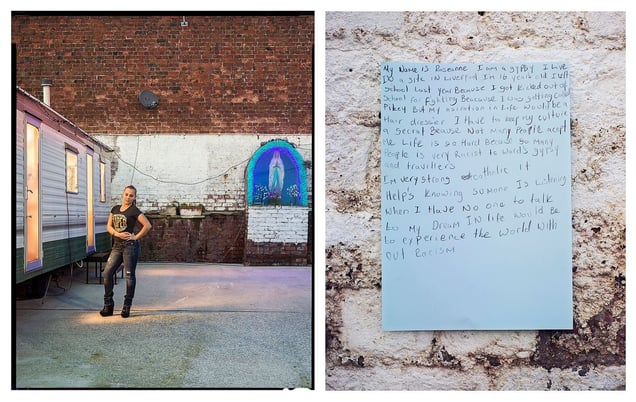 My Name is Roseanne I am a gypsy I Live
On a site in Liverpool Im 16 years old I left
school last year Because I got kicked out of
School for fighting Because I was getting called
Pikey But My asiration in Life would be a
Hair dresser I Have to keep my culture
a secret Because Not Many People accept
Me Life is so Hard Because so Many
People is very Racist to Wards gypsy
and travellers
I'm very strong catholic it
Help's Knowing someone Is Listning
When I Have No one to talk
to My Dream IN Life would Be
to experience the World With
out Racism